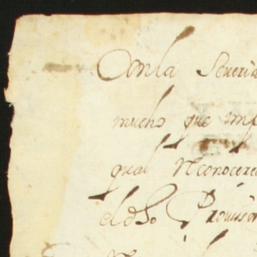 Con la Severid
mucho que imp
qual Reconocere
el dho Provisor